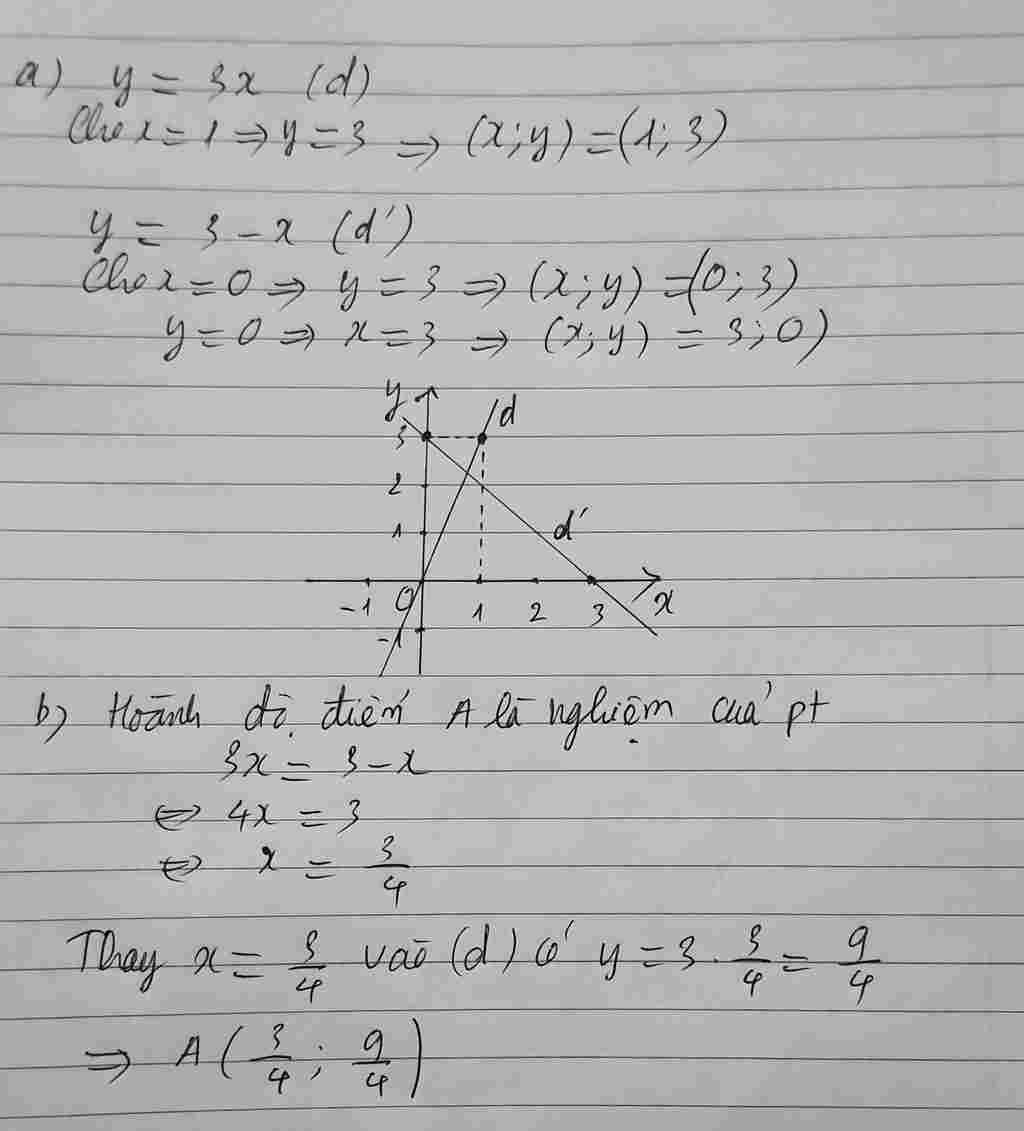 a) y = 3x (d)
Cho x = 1 ⇒ y = 3 ⇒ (x; y) = (1; 3)
y = 3 - x (d')
Cho x = 0 ⇒ y = 3 ⇒ (x; y) = (0; 3)
y = 0 ⇒ x = 3 ⇒ (x; y) = 3; 0)
y
d
3
2
1
d'
-1 O 1 2 3 x
-1
b) Hoành độ điểm A là nghiệm của pt
3x = 3 - x
⇔ 4x = 3
⇔ x = 3/4
Thay x = 3/4 vào (d) có y = 3 . 3/4 = 9/4
⇒ A (3/4 ; 9/4)